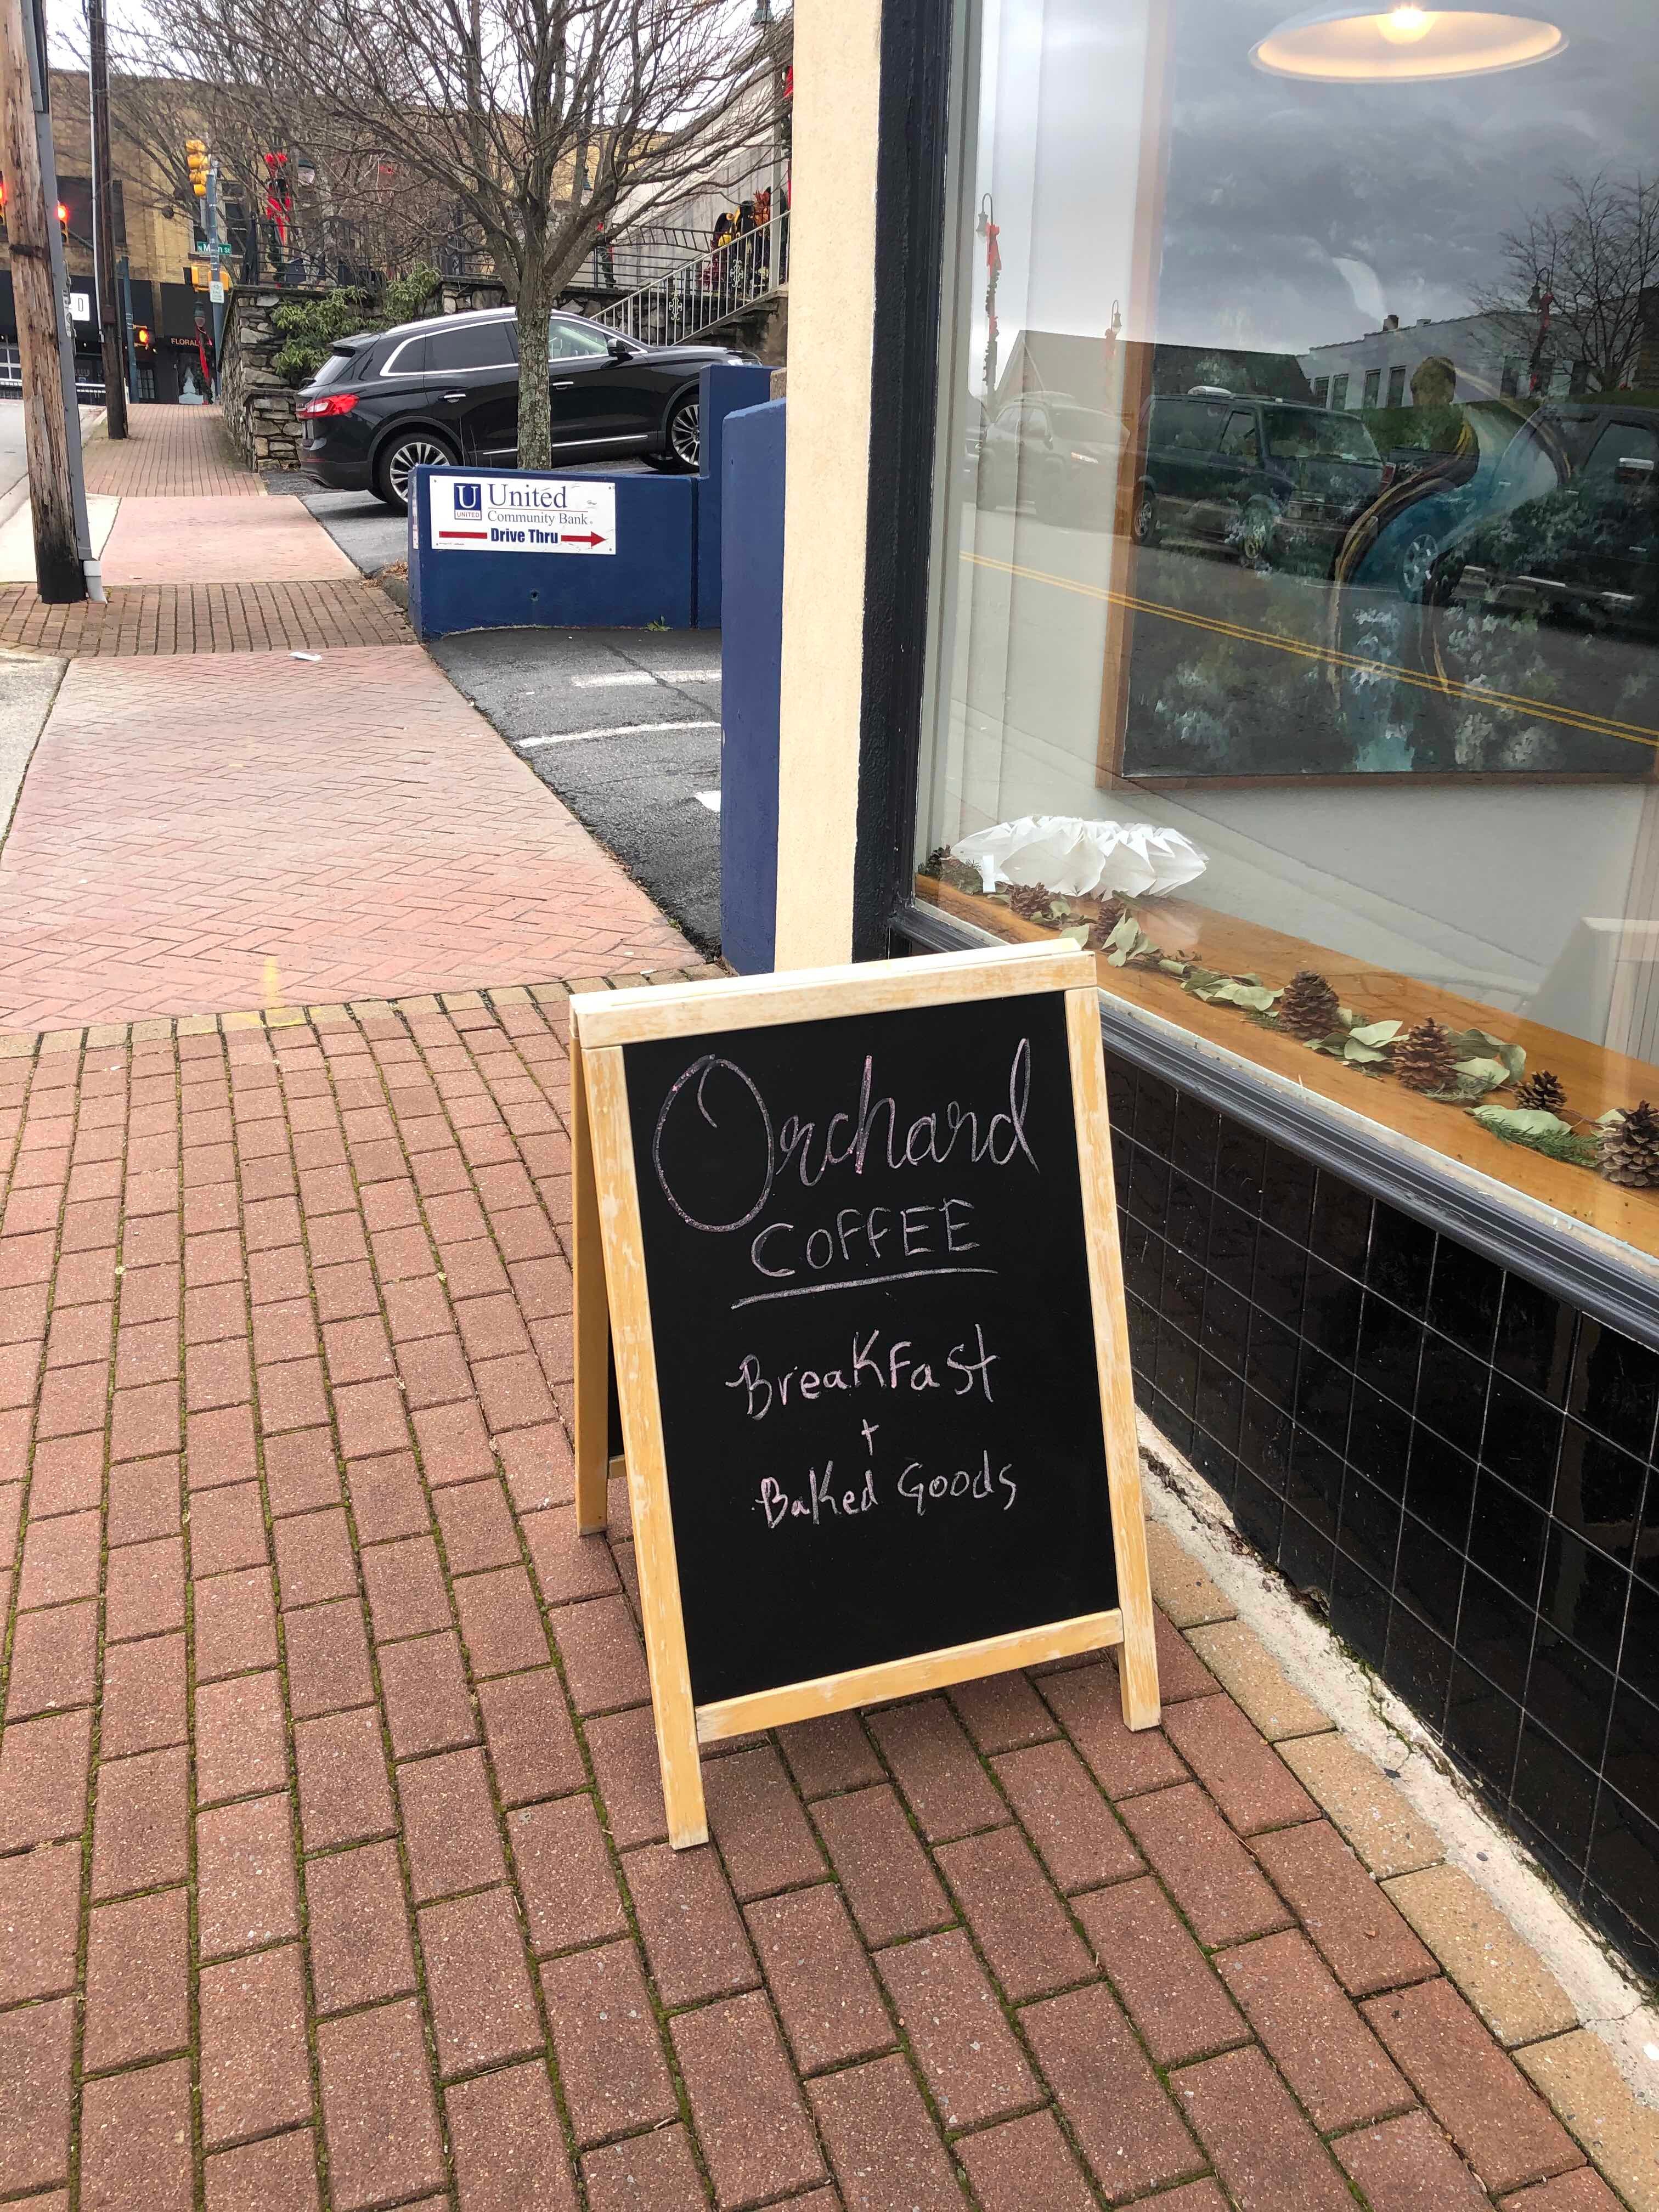 N Main St
FLORAL
U United
UNITED
Community Bank
Drive Thru
Orchard
COFFEE
Breakfast
+
Baked Goods